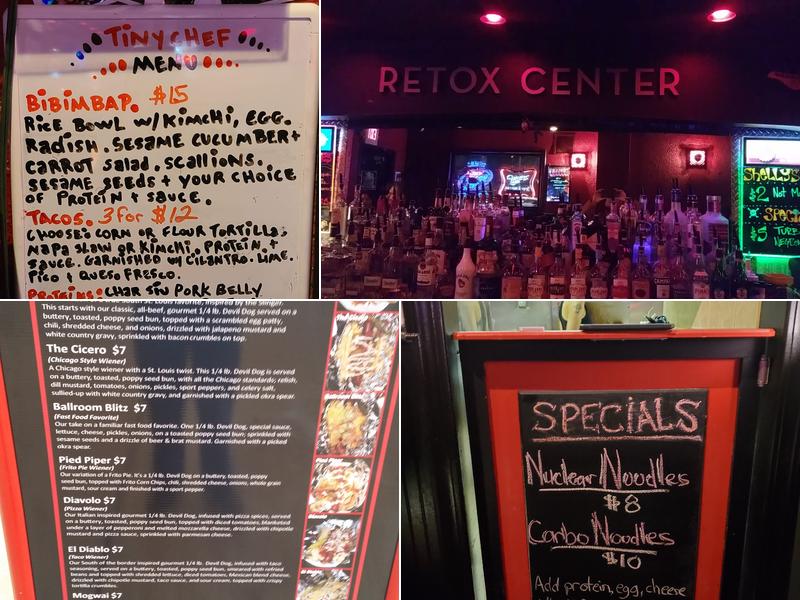 TINYCHEF
MENU
BiBiMBAP. $15
RiCE BOWL W/KiMCHi, EGG.
RADiSH. SESAME CUCUMBER+
CARROT SALAD. SCALLiONS.
SESAME SEEDS + YOUR CHOiCE
OF PROTEiN + SAUCE.
TACOS. 3 for $12
CHOOSE: CORN OR FLOUR TORTiLLA:
NAPA SLAW OR KiMCHi, PROTEiN, +
SAUCE. GARNiSHED W/ CiLANTRO. LiME.
PiCO & QUESO FRESCO.
PROTEiNS: CHAR SiU PORK BELLY
RETOX CENTER
SHELLY'S
$2 Not M
SPECI
$5 TURB
This starts with our classic, all-beef, gourmet 1/4 lb. Devil Dog served on a
buttery, toasted, poppy seed bun, topped with a scrambled egg patty,
chili, shredded cheese, and onions, drizzled with jalapeno mustard and
white country gravy, sprinkled with bacon crumbles on top.
The Cicero $7
(Chicago Style Wiener)
A Chicago style wiener with a St. Louis twist. This 1/4 lb. Devil Dog is served
on a buttery, toasted, poppy seed bun, with all the Chicago standards; relish,
dill mustard, tomatoes, onions, pickles, sport peppers, and celery salt,
sullied-up with white country gravy, and garnished with a pickled okra spear.
Ballroom Blitz $7
(Fast Food Favorite)
Our take on a familiar fast food favorite. One 1/4 lb. Devil Dog, special sauce,
lettuce, cheese, pickles, onions, on a toasted poppy seed bun; sprinkled with
sesame seeds and a drizzle of beer & brat mustard. Garnished with a pickled
okra spear.
Pied Piper $7
(Frito Pie Wiener)
Our variation of a Frito Pie. It's a 1/4 lb. Devil Dog on a buttery, toasted, poppy
seed bun, topped with Frito Corn Chips, chili, shredded cheese, onions, whole grain
mustard, sour cream and finished with a sport pepper.
Diavolo $7
(Pizza Wiener)
Our Italian inspired gourmet 1/4 lb. Devil Dog, infused with pizza spices, served
on a buttery, toasted, poppy seed bun, topped with diced tomatoes, blanketed
under a layer of pepperoni and melted mozzarella cheese, drizzled with chipotle
mustard and pizza sauce, sprinkled with parmesan cheese.
El Diablo $7
(Taco Wiener)
Our South of the border inspired gourmet 1/4 lb. Devil Dog, infused with taco
seasoning, served on a buttery, toasted, poppy seed bun, smeared with refried
beans and topped with shredded lettuce, diced tomatoes, Mexican blend cheese,
drizzled with chipotle mustard, taco sauce, and sour cream, topped with crispy
tortilla crumbles.
Mogwai $7
Ballroom Blitz
Pied Piper
Diavolo
El Diablo
SPECiALS
Nuclear Noodles
$8
Carbo Noodles
$10
Add protein, egg, cheese